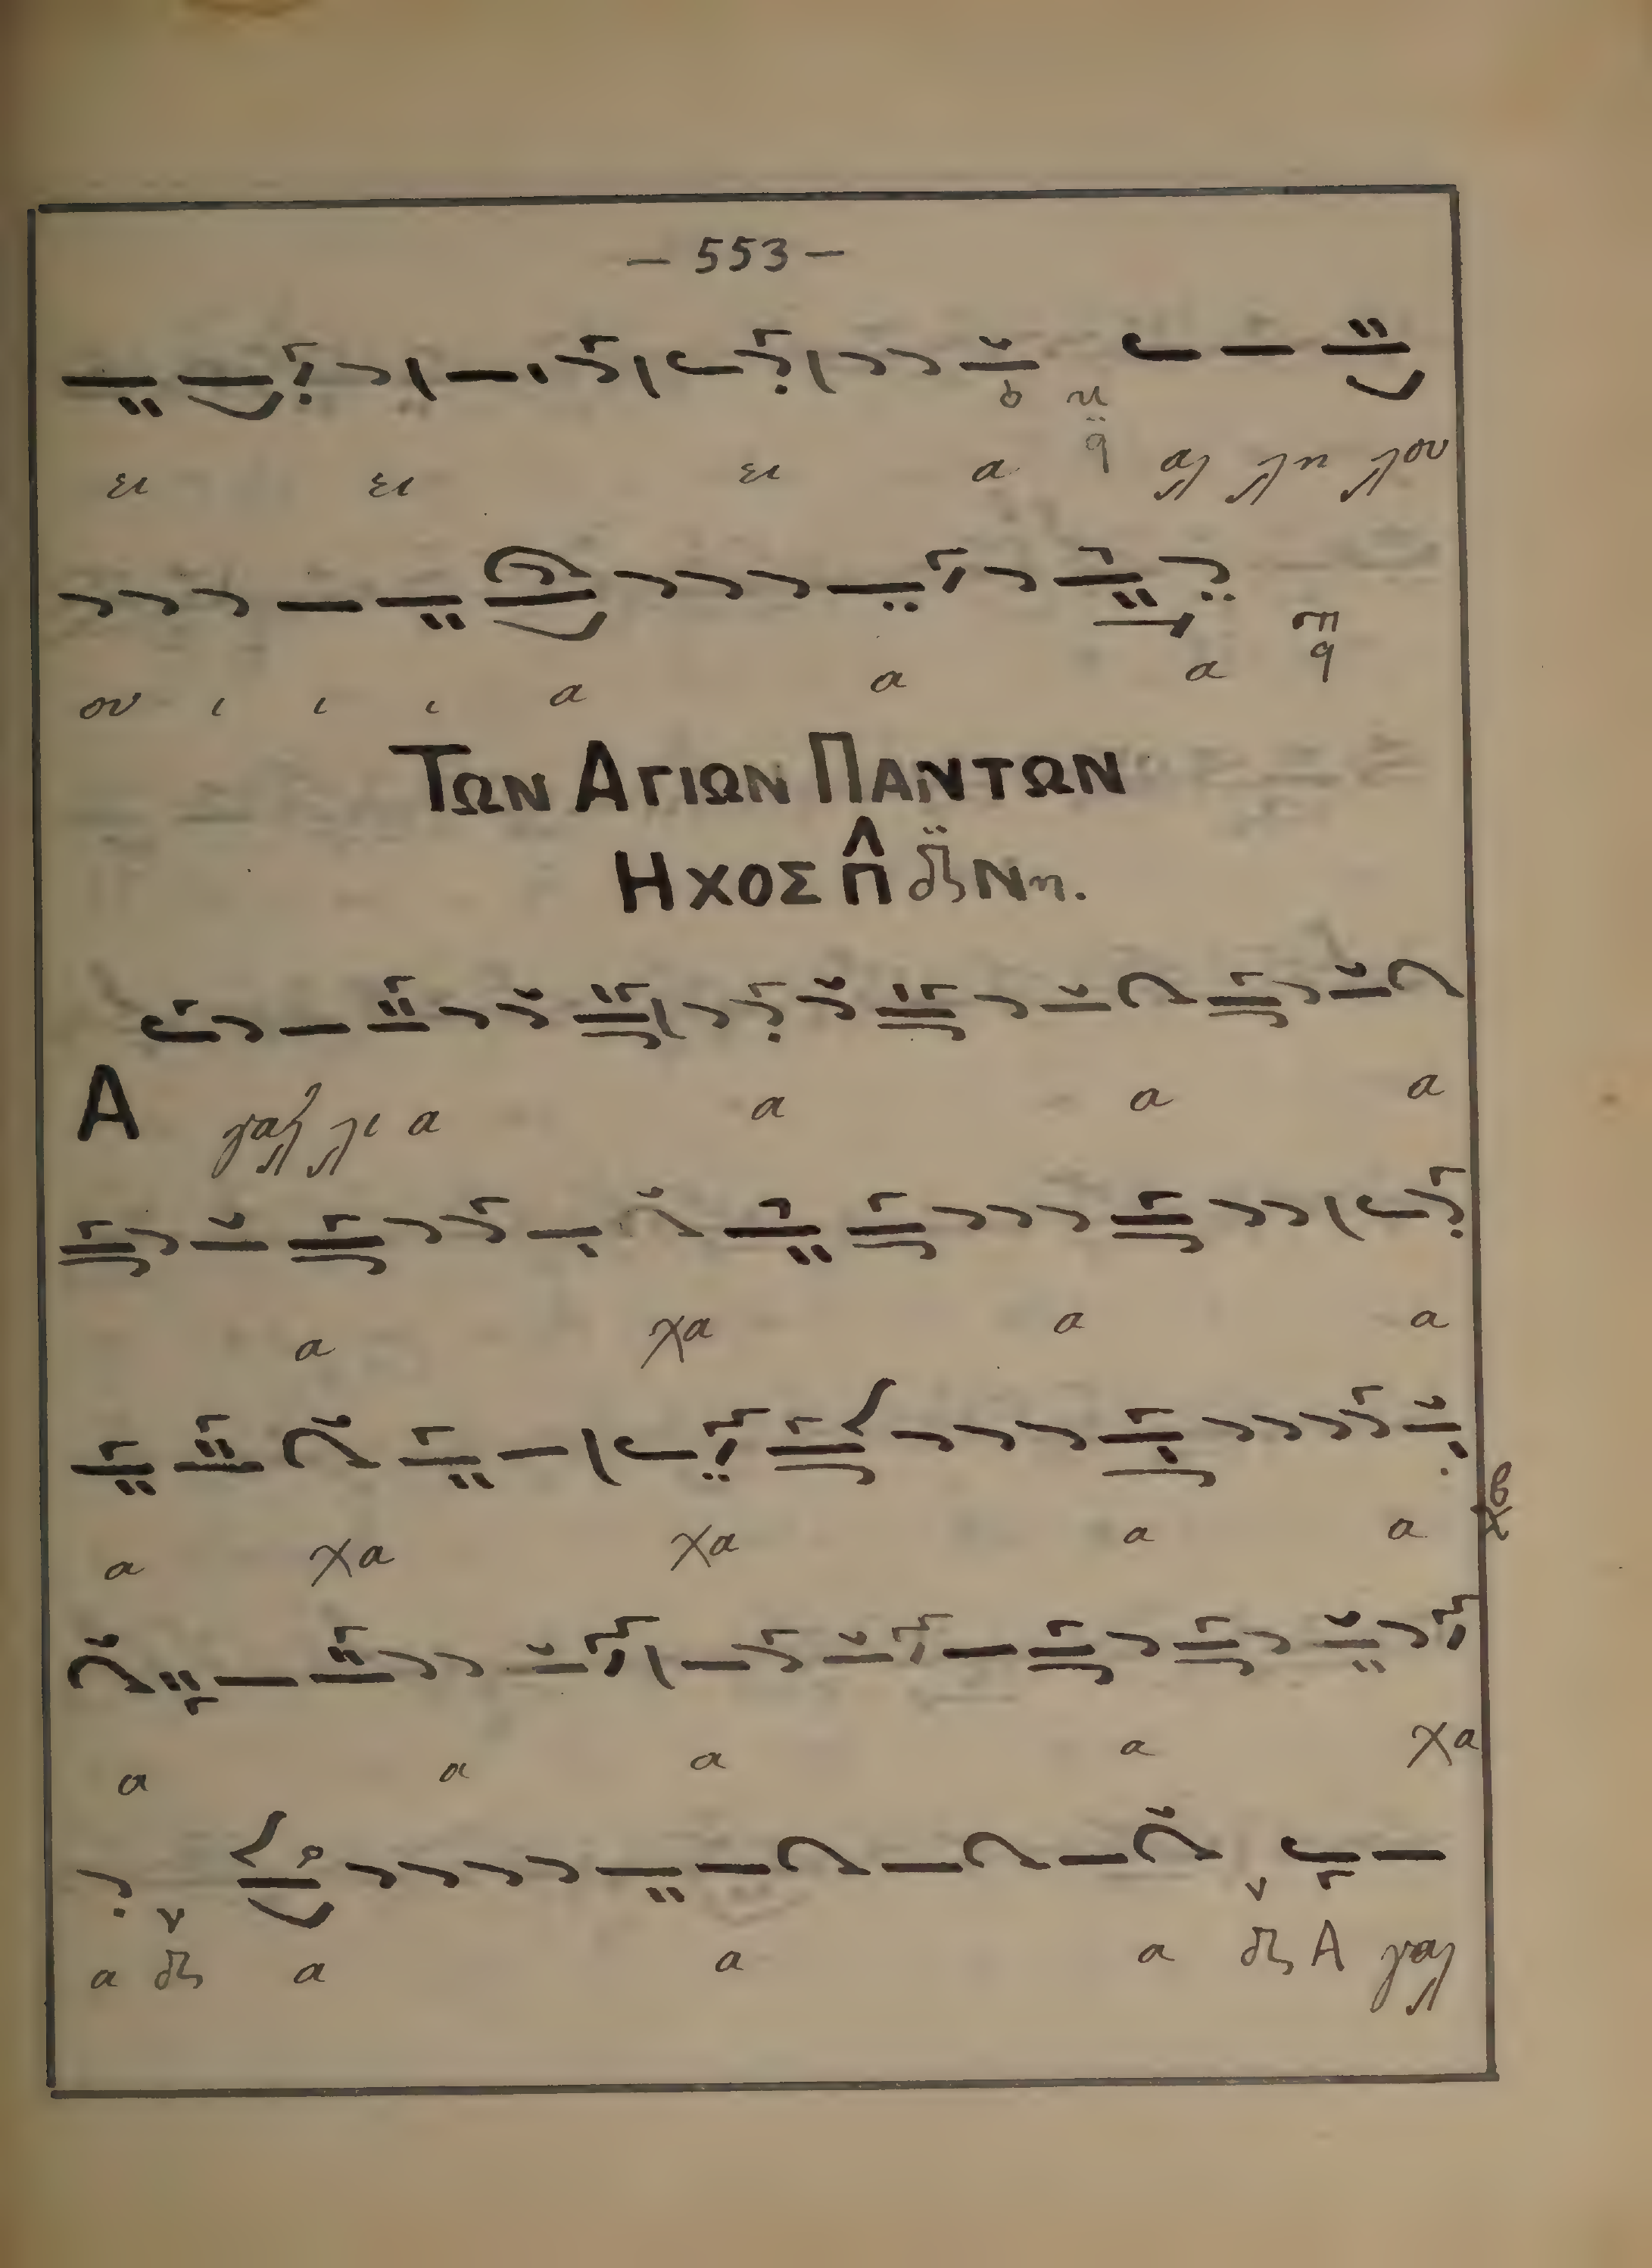 – 553 –
ει ει ει α αλ λη λου
ου ι ι ι α α α
ΤΩΝ ΑΓΙΩΝ ΠΑΝΤΩΝ
ΗΧΟΣ Νη.
Α γαλ λι α α α α
α χα α α
α χα χα α α
α α α α χα
α α α α Α γαλ